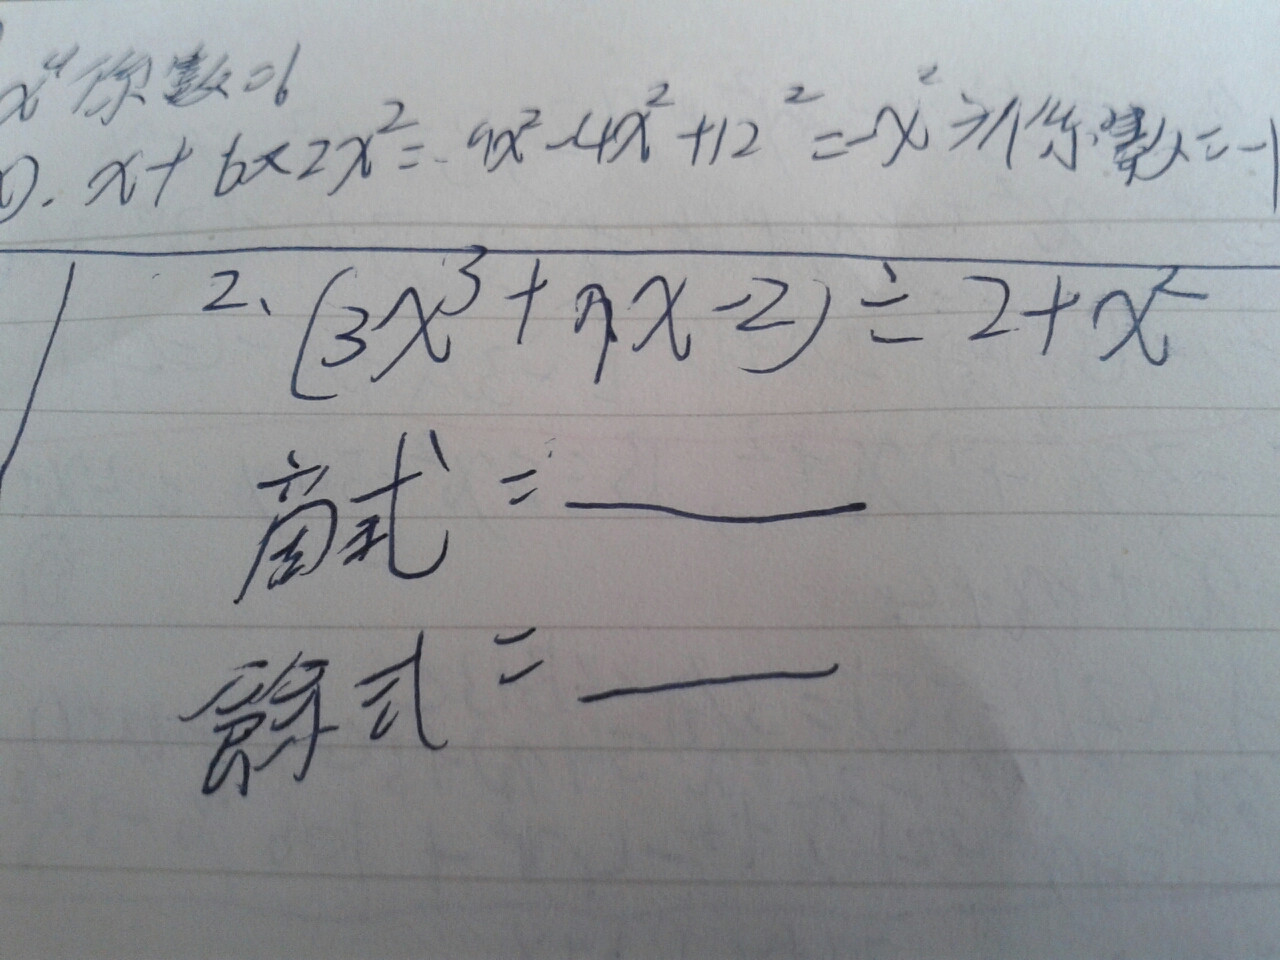 x⁴係數=6
x+6×2x²=9x²-4x²+12²=-x²⇒係數=-1
2、(3x³+9x-2)÷2+x²
商式=
餘式=